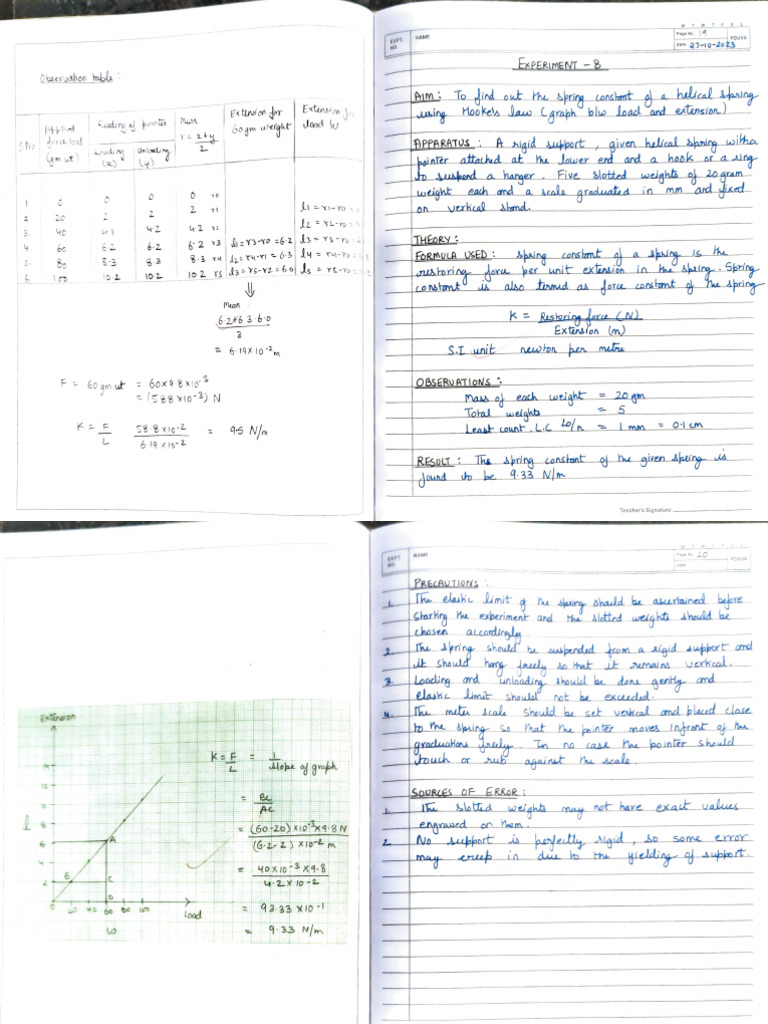 Observation table :
S.No | Applied force load (gm wt) | Reading of pointer Loading (x) | Unloading (y) | Mean r = x+y / 2 | Extension for 60gm weight | Extension for load W
1 0 0 0 0 r0
2 20 2 2 2 r1 l1 = r1-r0
3 40 4.1 4.2 4.2 r2 l2 = r2-r0
4. 60 6.2 6.2 6.2 r3 l1 = r3-r0 = 6.2 l3 = r3-r0
5. 80 8.3 8.3 8.3 r4 l2 = r4-r1 = 6.3 l4 = r4-r0
6 100 10.2 10.2 10.2 r5 l3 = r5-r2 = 6.0 l5 = r5-r0
Mean
6.2+6.3+6.0
3
= 6.19×10-2m
F = 60gm wt = 60×9.8×10-3
= (588×10-3) N
K = F/L 58.8×10-2 / 6.19×10-2 = 9.5 N/m
EXPT. NO. NAME
M T W T F S S
Page No. 19 YOUVA
Date: 27-10-2023
EXPERIMENT - 8
AIM : To find out the spring constant of a helical spring
using Hooke's law (graph b/w load and extension)
APPARATUS : A rigid support, given helical spring with a
pointer attached at the lower end and a hook or a ring
to suspend a hanger. Five slotted weights of 20 gram
weight each and a scale graduated in mm and fixed
on vertical stand.
THEORY :
FORMULA USED : Spring constant of a spring is the
restoring force per unit extension in the spring. Spring
constant is also termed as force constant of the spring
K = Restoring force (N)
Extension (m)
S.I unit newton per metre
OBSERVATIONS :
Mass of each weight = 20 gm
Total weights = 5
Least count. L.C = 1 mm = 0.1 cm
RESULT : The spring constant of the given spring is
found to be 9.33 N/m
Teacher's Signature:
Extension
14
12
10
8
6
4
2
0 20 40 60 80 100
l
A
B
C
D
load
W
K = F/L = 1 / slope of graph
= BC / AC
= (60-20)×10-3×9.8 N
(6.2-2)×10-2 m
= 40×10-3×9.8
4.2×10-2
= 93.33×10-1
= 9.33 N/m
EXPT. NO. NAME
M T W T F S S
Page No. 20 YOUVA
Date:
PRECAUTIONS :
1. The elastic limit of the spring should be ascertained before
starting the experiment and the slotted weights should be
chosen accordingly.
2. The spring should be suspended from a rigid support and
it should hang freely so that it remains vertical.
3. Loading and unloading should be done gently and
elastic limit should not be exceeded.
4. The meter scale should be set vertical and placed close
to the spring so that the pointer moves infront of the
graduations freely. In no case the pointer should
touch or rub against the scale.
SOURCES OF ERROR :
1. The slotted weights may not have exact values
engraved on them.
2. No support is perfectly rigid, so some error
may creep in due to the yielding of support.